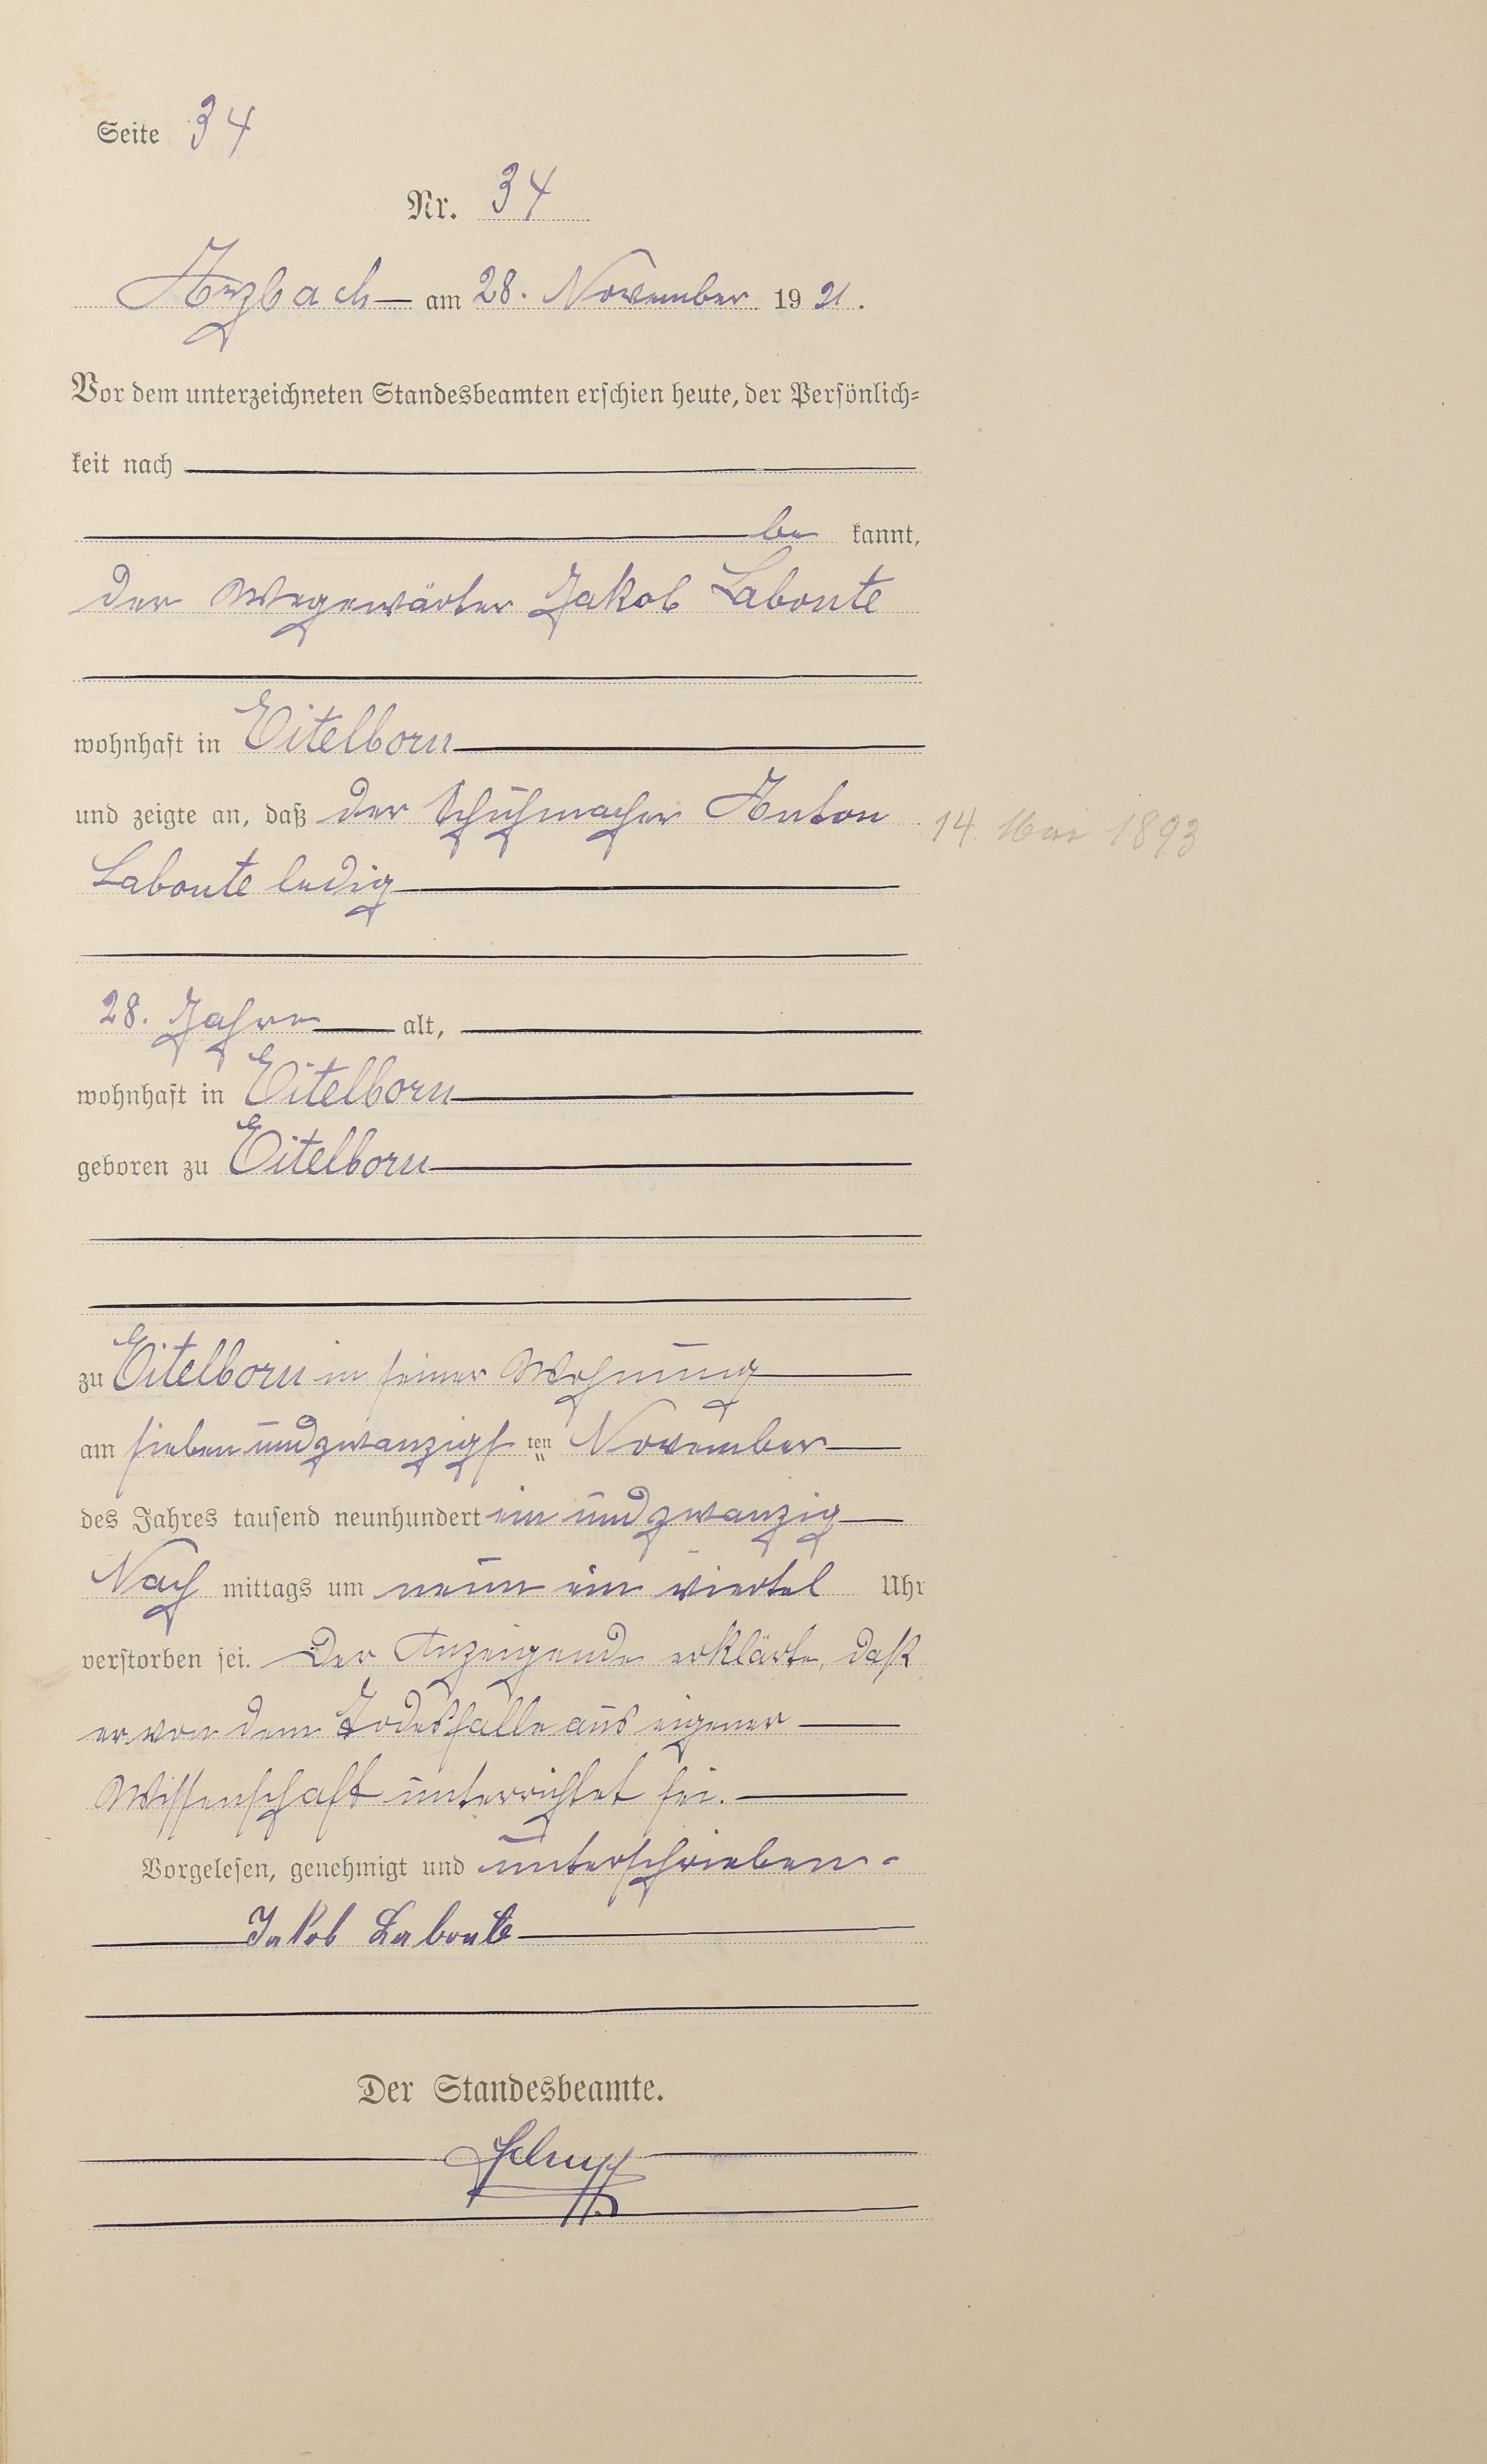 Seite 34
Nr. 34
Arzbach am 28. November 1921.
Vor dem unterzeichneten Standesbeamten erschien heute, der Persönlich-
keit nach
be kannt,
der Wegewärter Jakob Labonte
wohnhaft in Eitelborn
und zeigte an, daß der Schuhmacher Anton 14. Mai 1893
Labonte ledig
28. Jahre alt,
wohnhaft in Eitelborn
geboren zu Eitelborn
zu Eitelborn in seiner Wohnung
am sieben und zwanzigst ten November
des Jahres tausend neunhundert ein und zwanzig
Nach mittags um neun ein viertel Uhr
verstorben sei. Der Anzeigende erklärte, daß
er von dem Todesfalle aus eigener
Wissenschaft unterrichtet sei.
Vorgelesen, genehmigt und unterschrieben
Jakob Labonte
Der Standesbeamte.